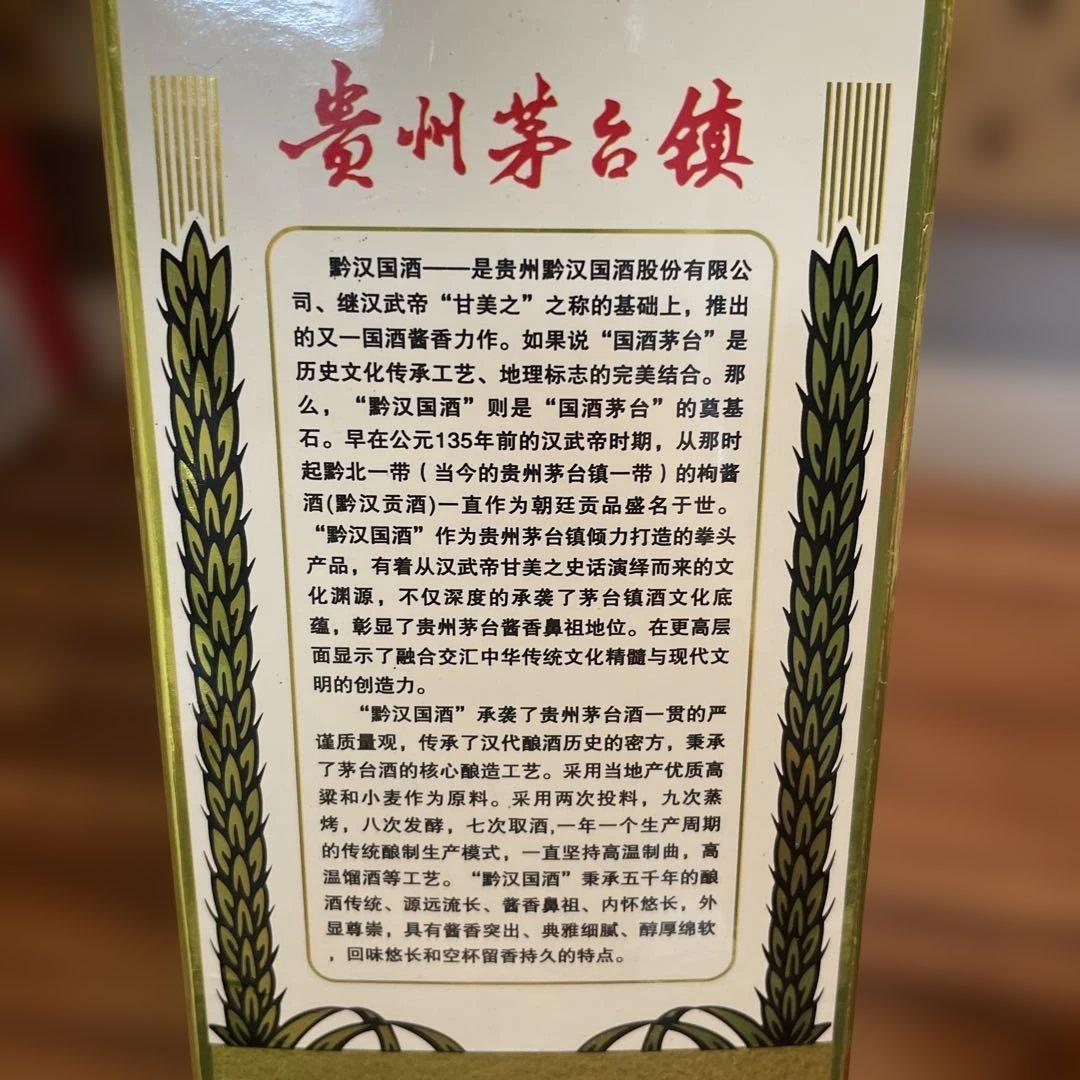 贵州茅台镇
黔汉国酒——是贵州黔汉国酒股份有限公
司、继汉武帝“甘美之”之称的基础上，推出
的又一国酒酱香力作。如果说“国酒茅台”是
历史文化传承工艺、地理标志的完美结合。那
么，“黔汉国酒”则是“国酒茅台”的奠基
石。早在公元135年前的汉武帝时期，从那时
起黔北一带（当今的贵州茅台镇一带）的枸酱
酒(黔汉贡酒)一直作为朝廷贡品盛名于世。
“黔汉国酒”作为贵州茅台镇倾力打造的拳头
产品，有着从汉武帝甘美之史话演绎而来的文
化渊源，不仅深度的承袭了茅台镇酒文化底
蕴，彰显了贵州茅台酱香鼻祖地位。在更高层
面显示了融合交汇中华传统文化精髓与现代文
明的创造力。
“黔汉国酒”承袭了贵州茅台酒一贯的严
谨质量观，传承了汉代酿酒历史的密方，秉承
了茅台酒的核心酿造工艺。采用当地产优质高
粱和小麦作为原料。采用两次投料，九次蒸
烤，八次发酵，七次取酒,一年一个生产周期
的传统酿制生产模式，一直坚持高温制曲，高
温馏酒等工艺。“黔汉国酒”秉承五千年的酿
酒传统、源远流长、酱香鼻祖、内怀悠长，外
显尊崇，具有酱香突出、典雅细腻、醇厚绵软
，回味悠长和空杯留香持久的特点。